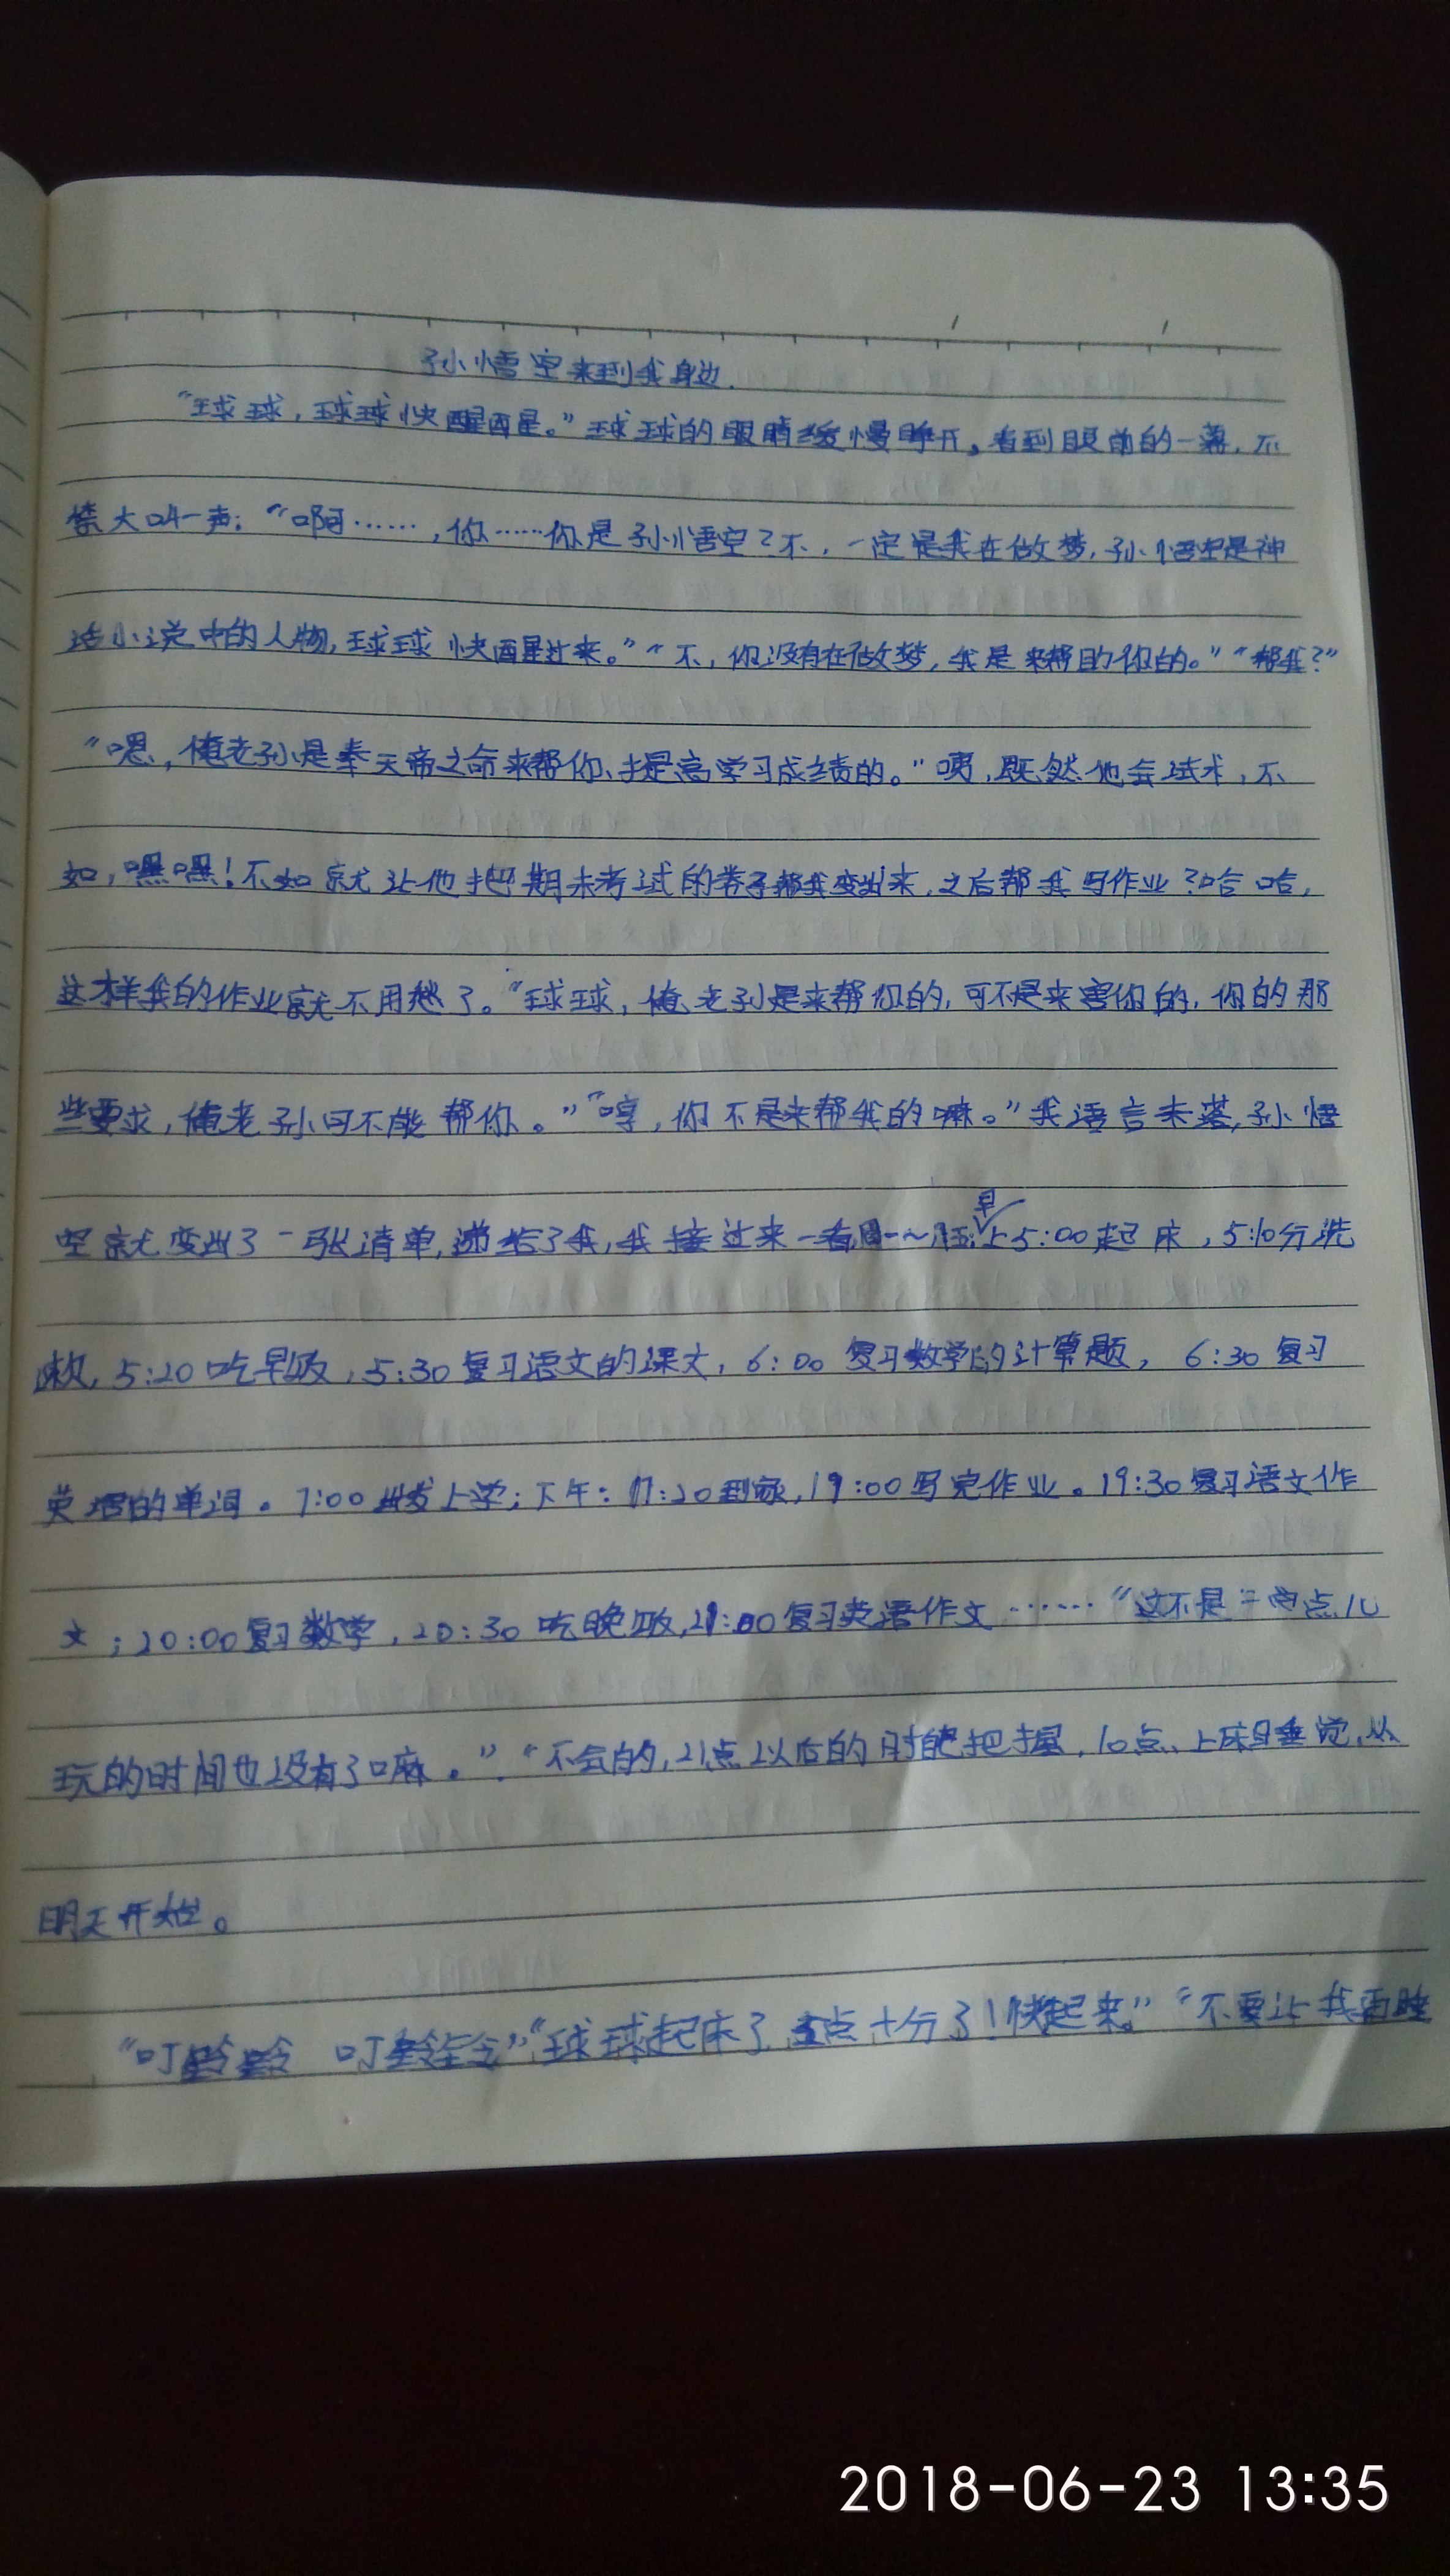 孙悟空来到我身边.
“球球，球球快醒醒。”球球的眼睛缓慢睁开，看到眼前的一幕，不
禁大叫一声：“啊……，你……你是孙悟空？不，一定是我在做梦，孙悟空是神
话小说中的人物，球球快醒过来。”“不，你没有在做梦，我是来帮助你的。”“帮我？”
“嗯，俺老孙是奉天帝之命来帮你提高学习成绩的。”咦，既然他会法术，不
如，嘿嘿！不如就让他把期末考试的卷子帮我变出来，之后帮我写作业？哈哈，
这样我的作业就不用愁了。“球球，俺老孙是来帮你的，可不是来害你的，你的那
些要求，俺老孙可不能帮你。”“哼，你不是来帮我的嘛。”我语言未落，孙悟
空就变出了一张清单，递给了我，我接过来一看周一～周五早上5:00起床，5:10分洗
漱，5:20吃早饭，5:30复习语文的课文，6:00复习数学的计算题，6:30复习
英语的单词。7:00出发上学；下午：17:20到家，19:00写完作业。19:30复习语文作
文；20:00复习数学，20:30吃晚饭，21:00复习英语作文……“这不是一点儿
玩的时间也没有了嘛。”“不会的，21点以后的时把握，10点上床睡觉，从
明天开始。
“叮铃铃 叮铃铃”“球球起床了，五点十分了！快起来”“不要让我再睡